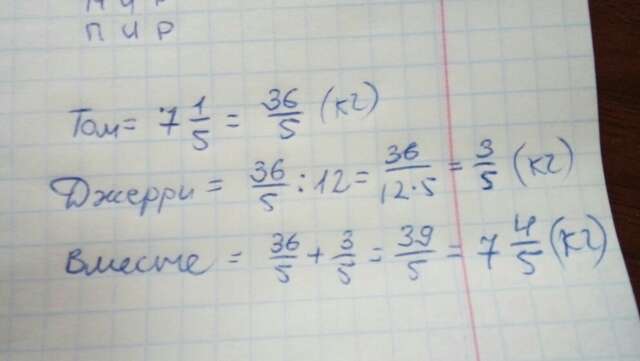 П И Р
Том = 7 1/5 = 36/5 (кг)
Джерри = 36/5 : 12 = 36/12·5 = 3/5 (кг)
Вместе = 36/5 + 3/5 = 39/5 = 7 4/5 (кг)